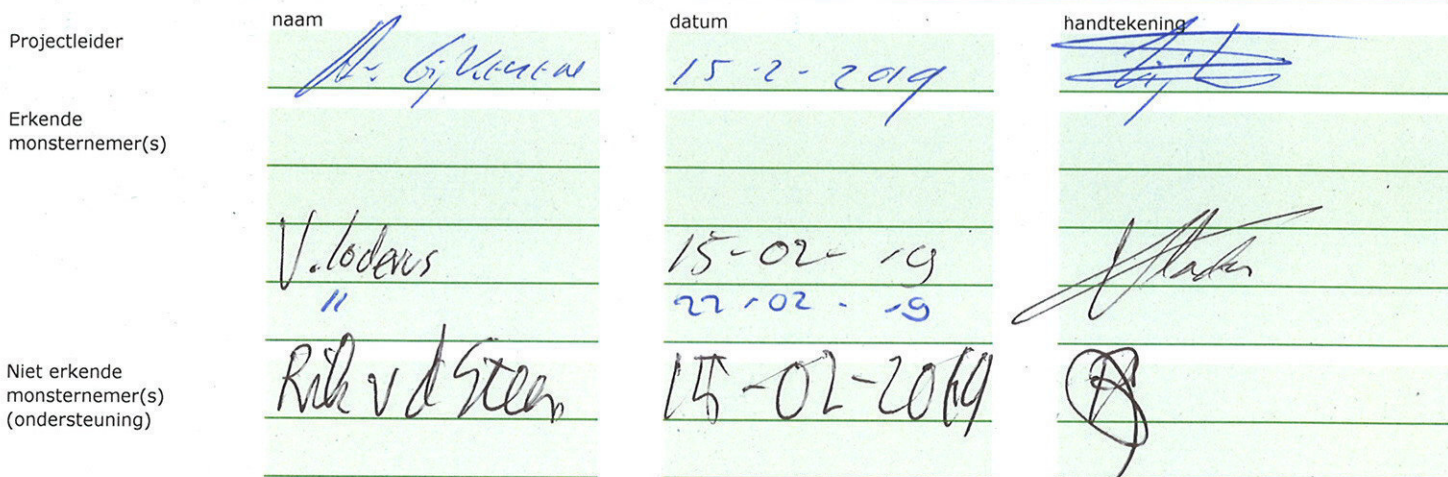 naam datum handtekening
Projectleider 15-2-2019
Erkende
monsternemer(s)
V. loderus 15-02-19
" 22-02-19
Niet erkende
monsternemer(s)
(ondersteuning)
Rik v d Steen 15-02-2019